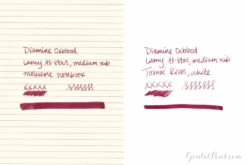 Diamine Oxblood
Lamy Al-Star, medium nib
notebook
XXXXX
Diamine Oxblood
Lamy Al-Star, medium nib
Tomoe River, white
XXXXX
GouletPens.com